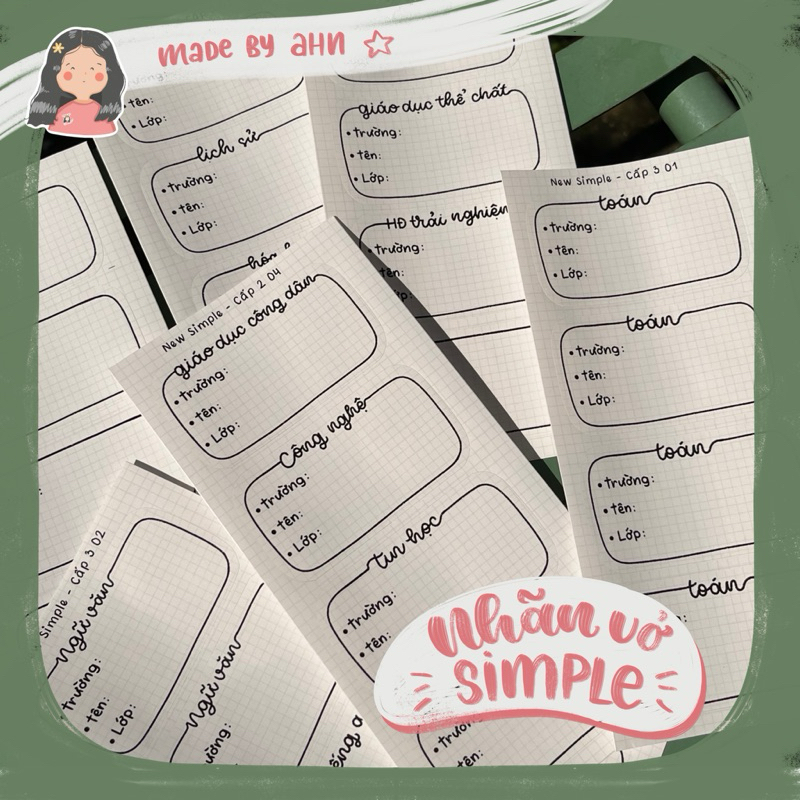 MADE BY AHN
trường:
• tên:
• Lớp:
lịch sử
• trường:
• tên:
• Lớp:
giáo dục thể chất
• trường:
• tên:
• Lớp:
HĐ trải nghiệm
• trường:
tên:
New Simple - Cấp 3 01
toán
• trường:
• tên:
• Lớp:
toán
• trường:
• tên:
• Lớp:
toán
• trường:
• tên:
• Lớp:
toán
New Simple - Cấp 2 04
giáo dục công dân
• trường:
• tên:
• Lớp:
Công nghệ
• trường:
• tên:
• Lớp:
tin học
• trường:
• tên:
Simple - Cấp 3 02
Ngữ văn
trường:
• tên:
• Lớp:
Ngữ văn
Nhãn vở
SIMPLE